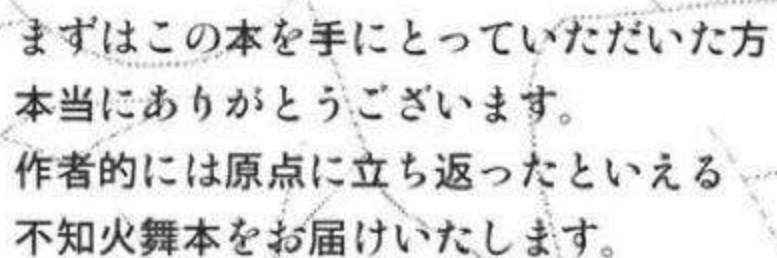 まずはこの本を手にとっていただいた方
本当にありがとうございます。
作者的には原点に立ち返ったといえる
不知火舞本をお届けいたします。